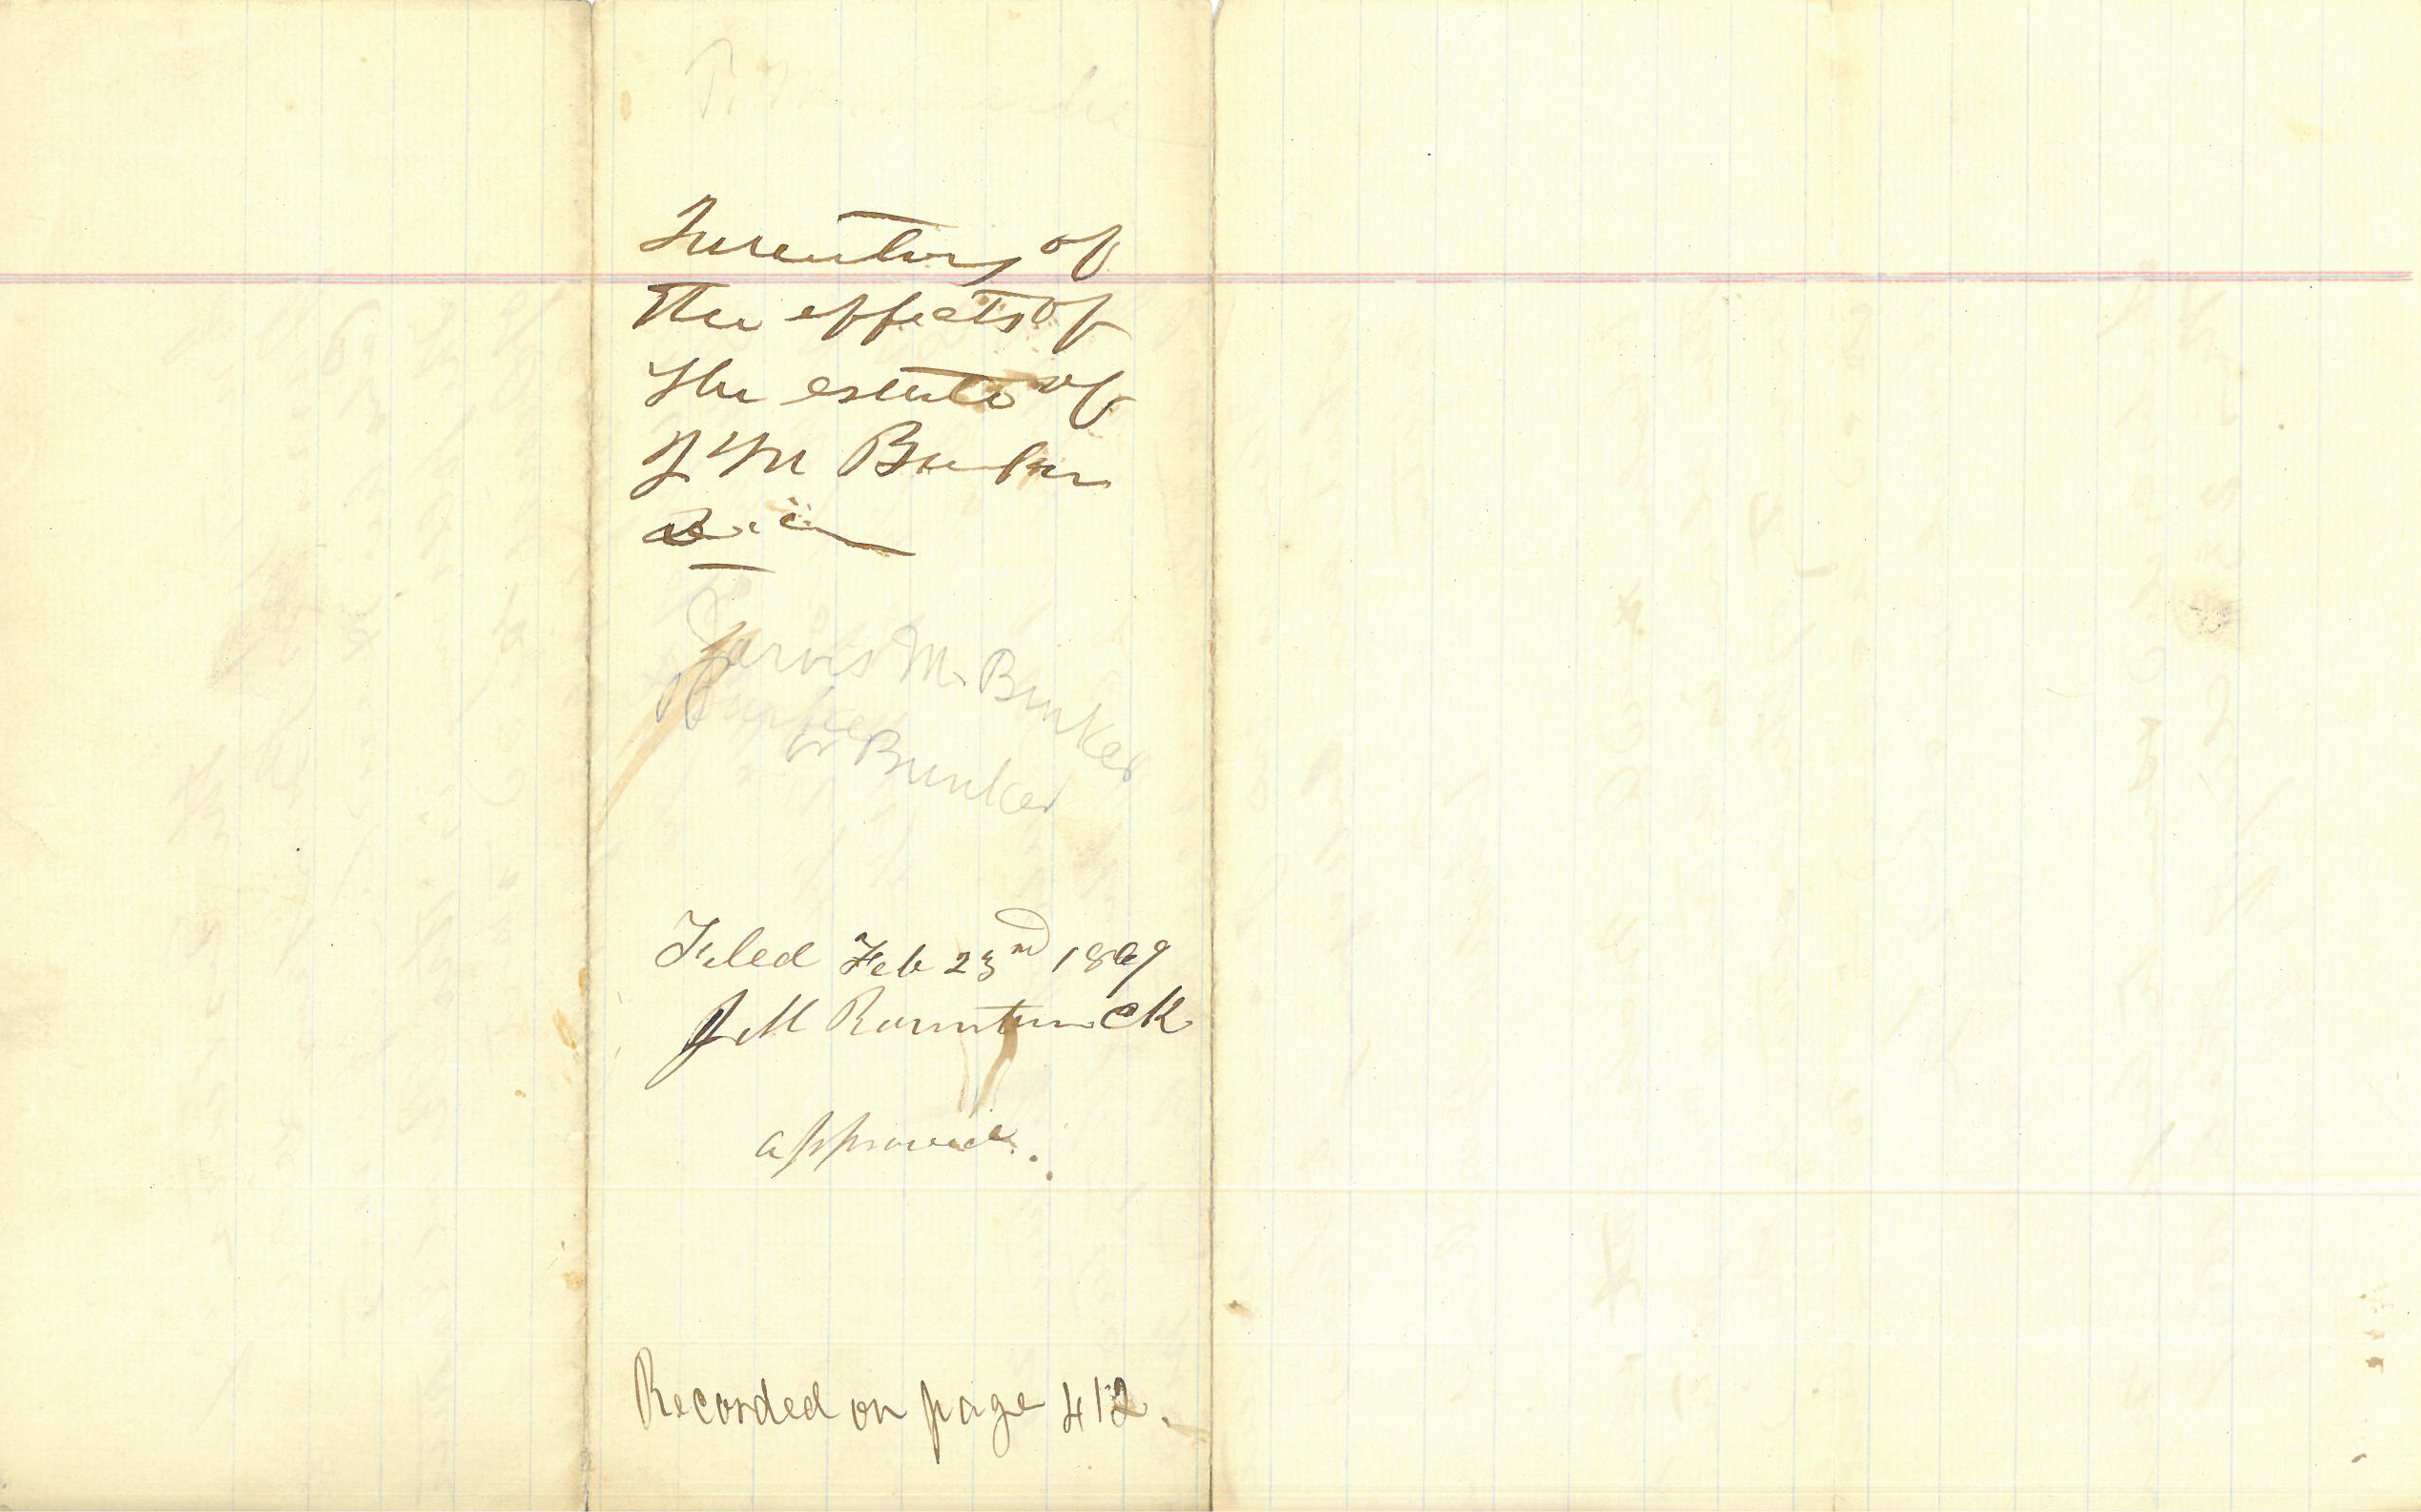 Inventory of
the effects of
the estate of
J M Bunker
Dec
Jarvis M. Bunker
or Bunker
Filed Feb 23rd 1869
J M Rountree Ck
approved.
Recorded on page 412.